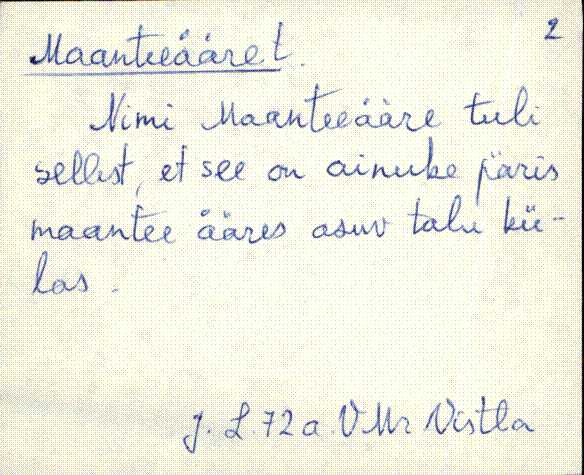 2
Maanteeääre t.
Nimi Maanteeääre tuli
sellest, et see on ainuke päris
maantee ääres asuv talu kü-
las.
J. L. 72 a. VMr Vistla